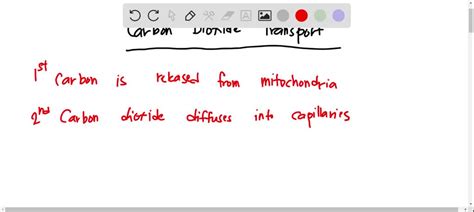 Carbon Dioxide Transport
1st Carbon is released from mitochondria
2nd Carbon dioxide diffuses into capillaries